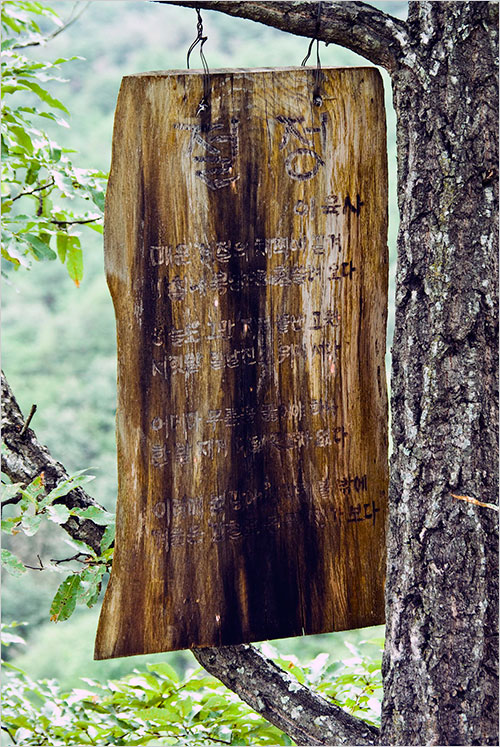 절정
이육사
매운 계절의 채찍에 갈겨
마침내 북방으로
하늘도 그만 지쳐 끝난
서릿발 칼날진 그 위에 서다
어데다 무릎을 꿇어야 하나
한 발 재겨 디딜 곳조차 없다
이러매 눈감아 생각해 볼 밖에
겨울은 강철로 된 무지갠가 보다